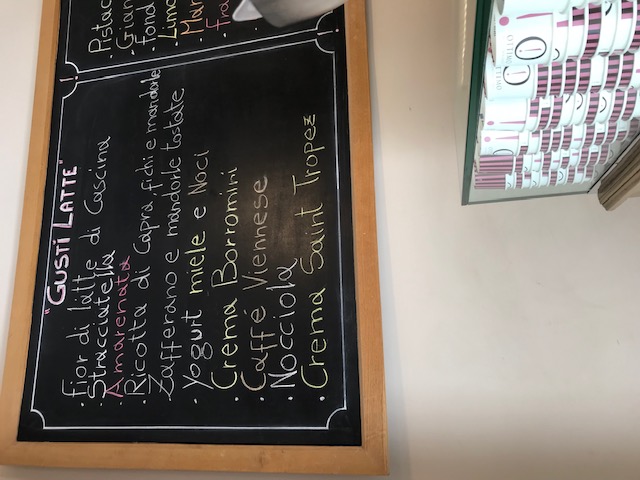 · Pistac
· Gian
· fond
· Limo
· Mar
· fra
"GUSTI LATTE"
· Fior di latte di Cascina
· Stracciatella
· Amarenata
· Ricotta di Capra, fichi e mandorle
· Zafferano e mandorle tostate
· Yogurt miele e Noci
· Crema Borromini
· Caffé Viennese
· Nocciola
· Crema Saint Tropez